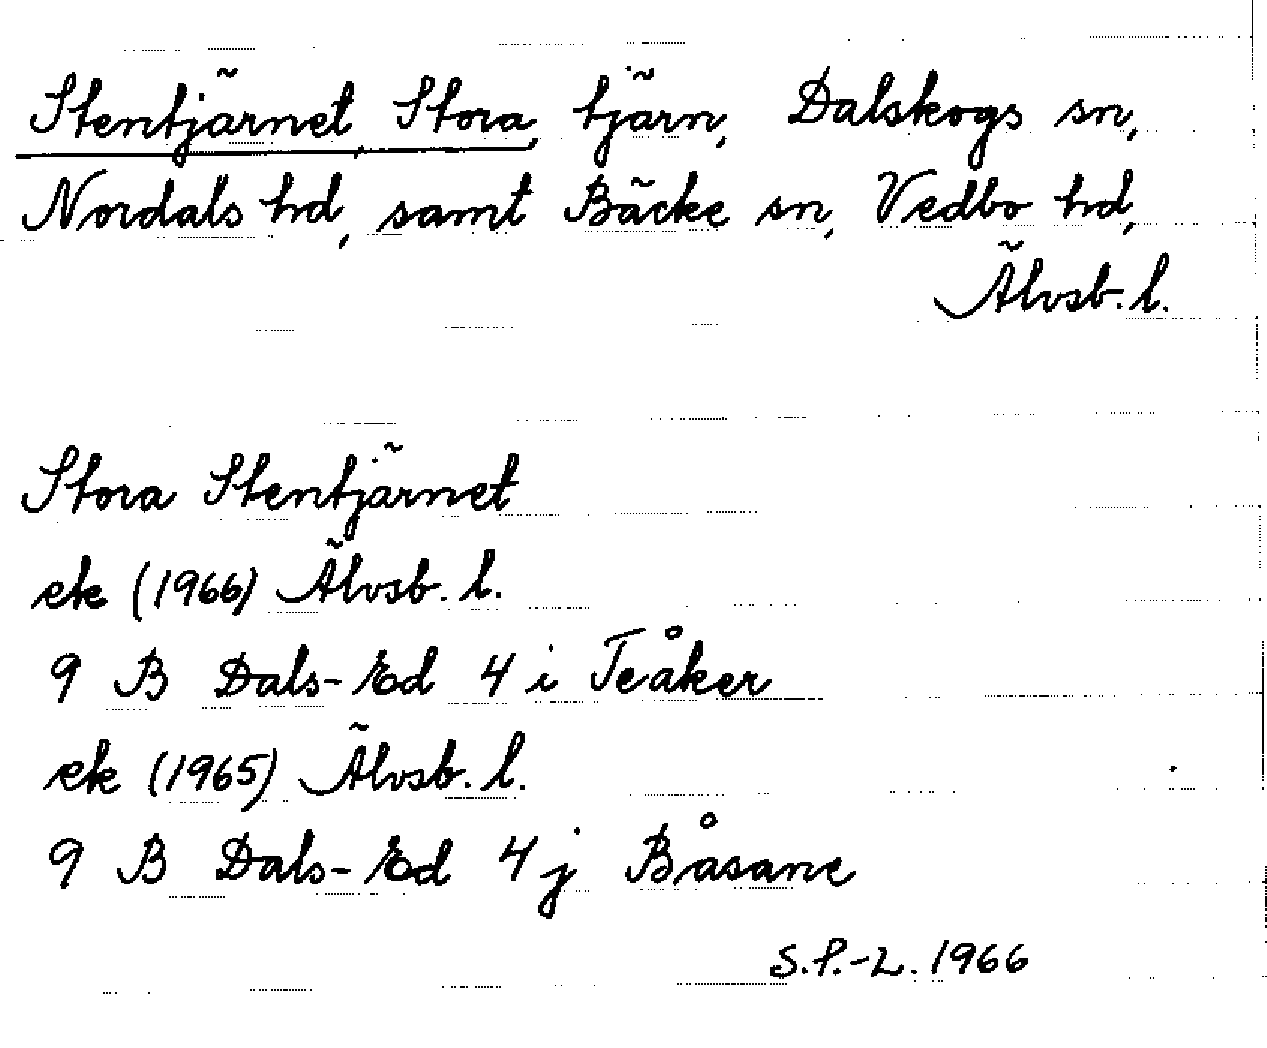 Stentjärnet, Stora, tjärn, Dalskogs sn,
Nordals hd, samt Bäcke sn, Vedbo hd,
Älvsb. l.
Stora Stentjärnet
ek (1966) Älvsb. l.
9 B Dals-Ed 4 i Teåker
ek (1965) Älvsb. l.
9 B Dals-Ed 4 j Båsane
S.P.-L. 1966